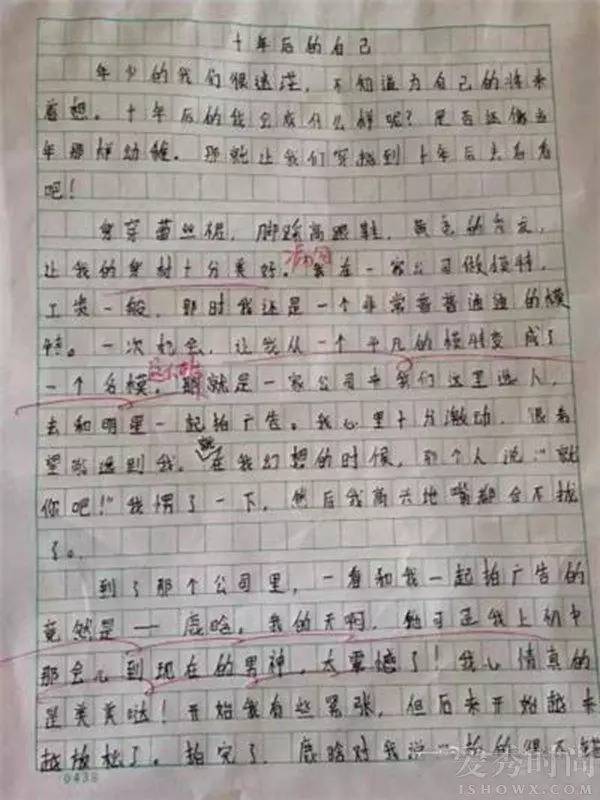 十年后的自己
年少的我们很迷茫，不知道为自己的将来
着想。十年后的我会成什么样呢？是否还像当
年那样幼稚。那就让我们穿越到十年后去看看
吧！
身穿蕾丝裙，脚踩高跟鞋，黄色的
让我的身材十分美好。我在一家公司做模特，
工资一般，那时我还是一个非常普普通通的模
特。一次机会，让我从一个平凡的模特变成了
一个名模。就是一家公司来我们这里选人，
去和明星一起拍广告。我心里十分激动，很希
望能选到我。就在我幻想的时候，那个人说：“就
你吧！”我愣了一下，然后我高兴地嘴都合不拢
了。
到了那个公司里，一看和我一起拍广告的
竟然是——鹿晗。我的天啊，他可是我上初中
那会儿到现在的男神，太震憾了！我心情真的
是美美哒！开始我有些紧张，但后来开始越来
越放松了。拍完了，鹿晗对我说“拍的很不错
0438
爱秀时间
ISHOWX.COM